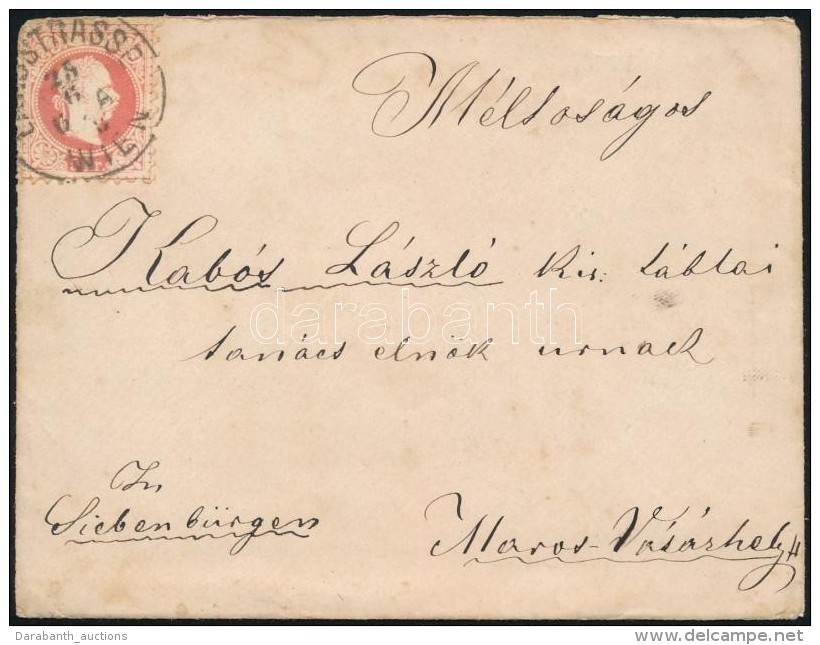 LANDSTRASSE
WIEN
Méltoságos
Kabós László kir: táblai
darabanth
tanács elnök urnak
In
Siebenbürgen
Maros-Vásárhely
Darabanth_auctions
www.delcampe.net